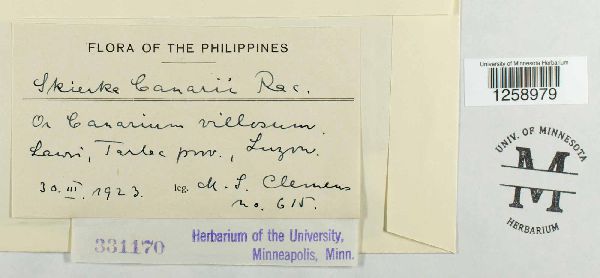 FLORA OF THE PHILIPPINES
Skierka Canarii Rac.
On Canarium villosum.
Tarlac prov., Luzon.
30. III. 1923. leg. M. S. Clemens
no. 615.
331170
Herbarium of the University,
Minneapolis, Minn.
University of Minnesota Herbarium
1258979
UNIV. OF MINNESOTA
M
HERBARIUM